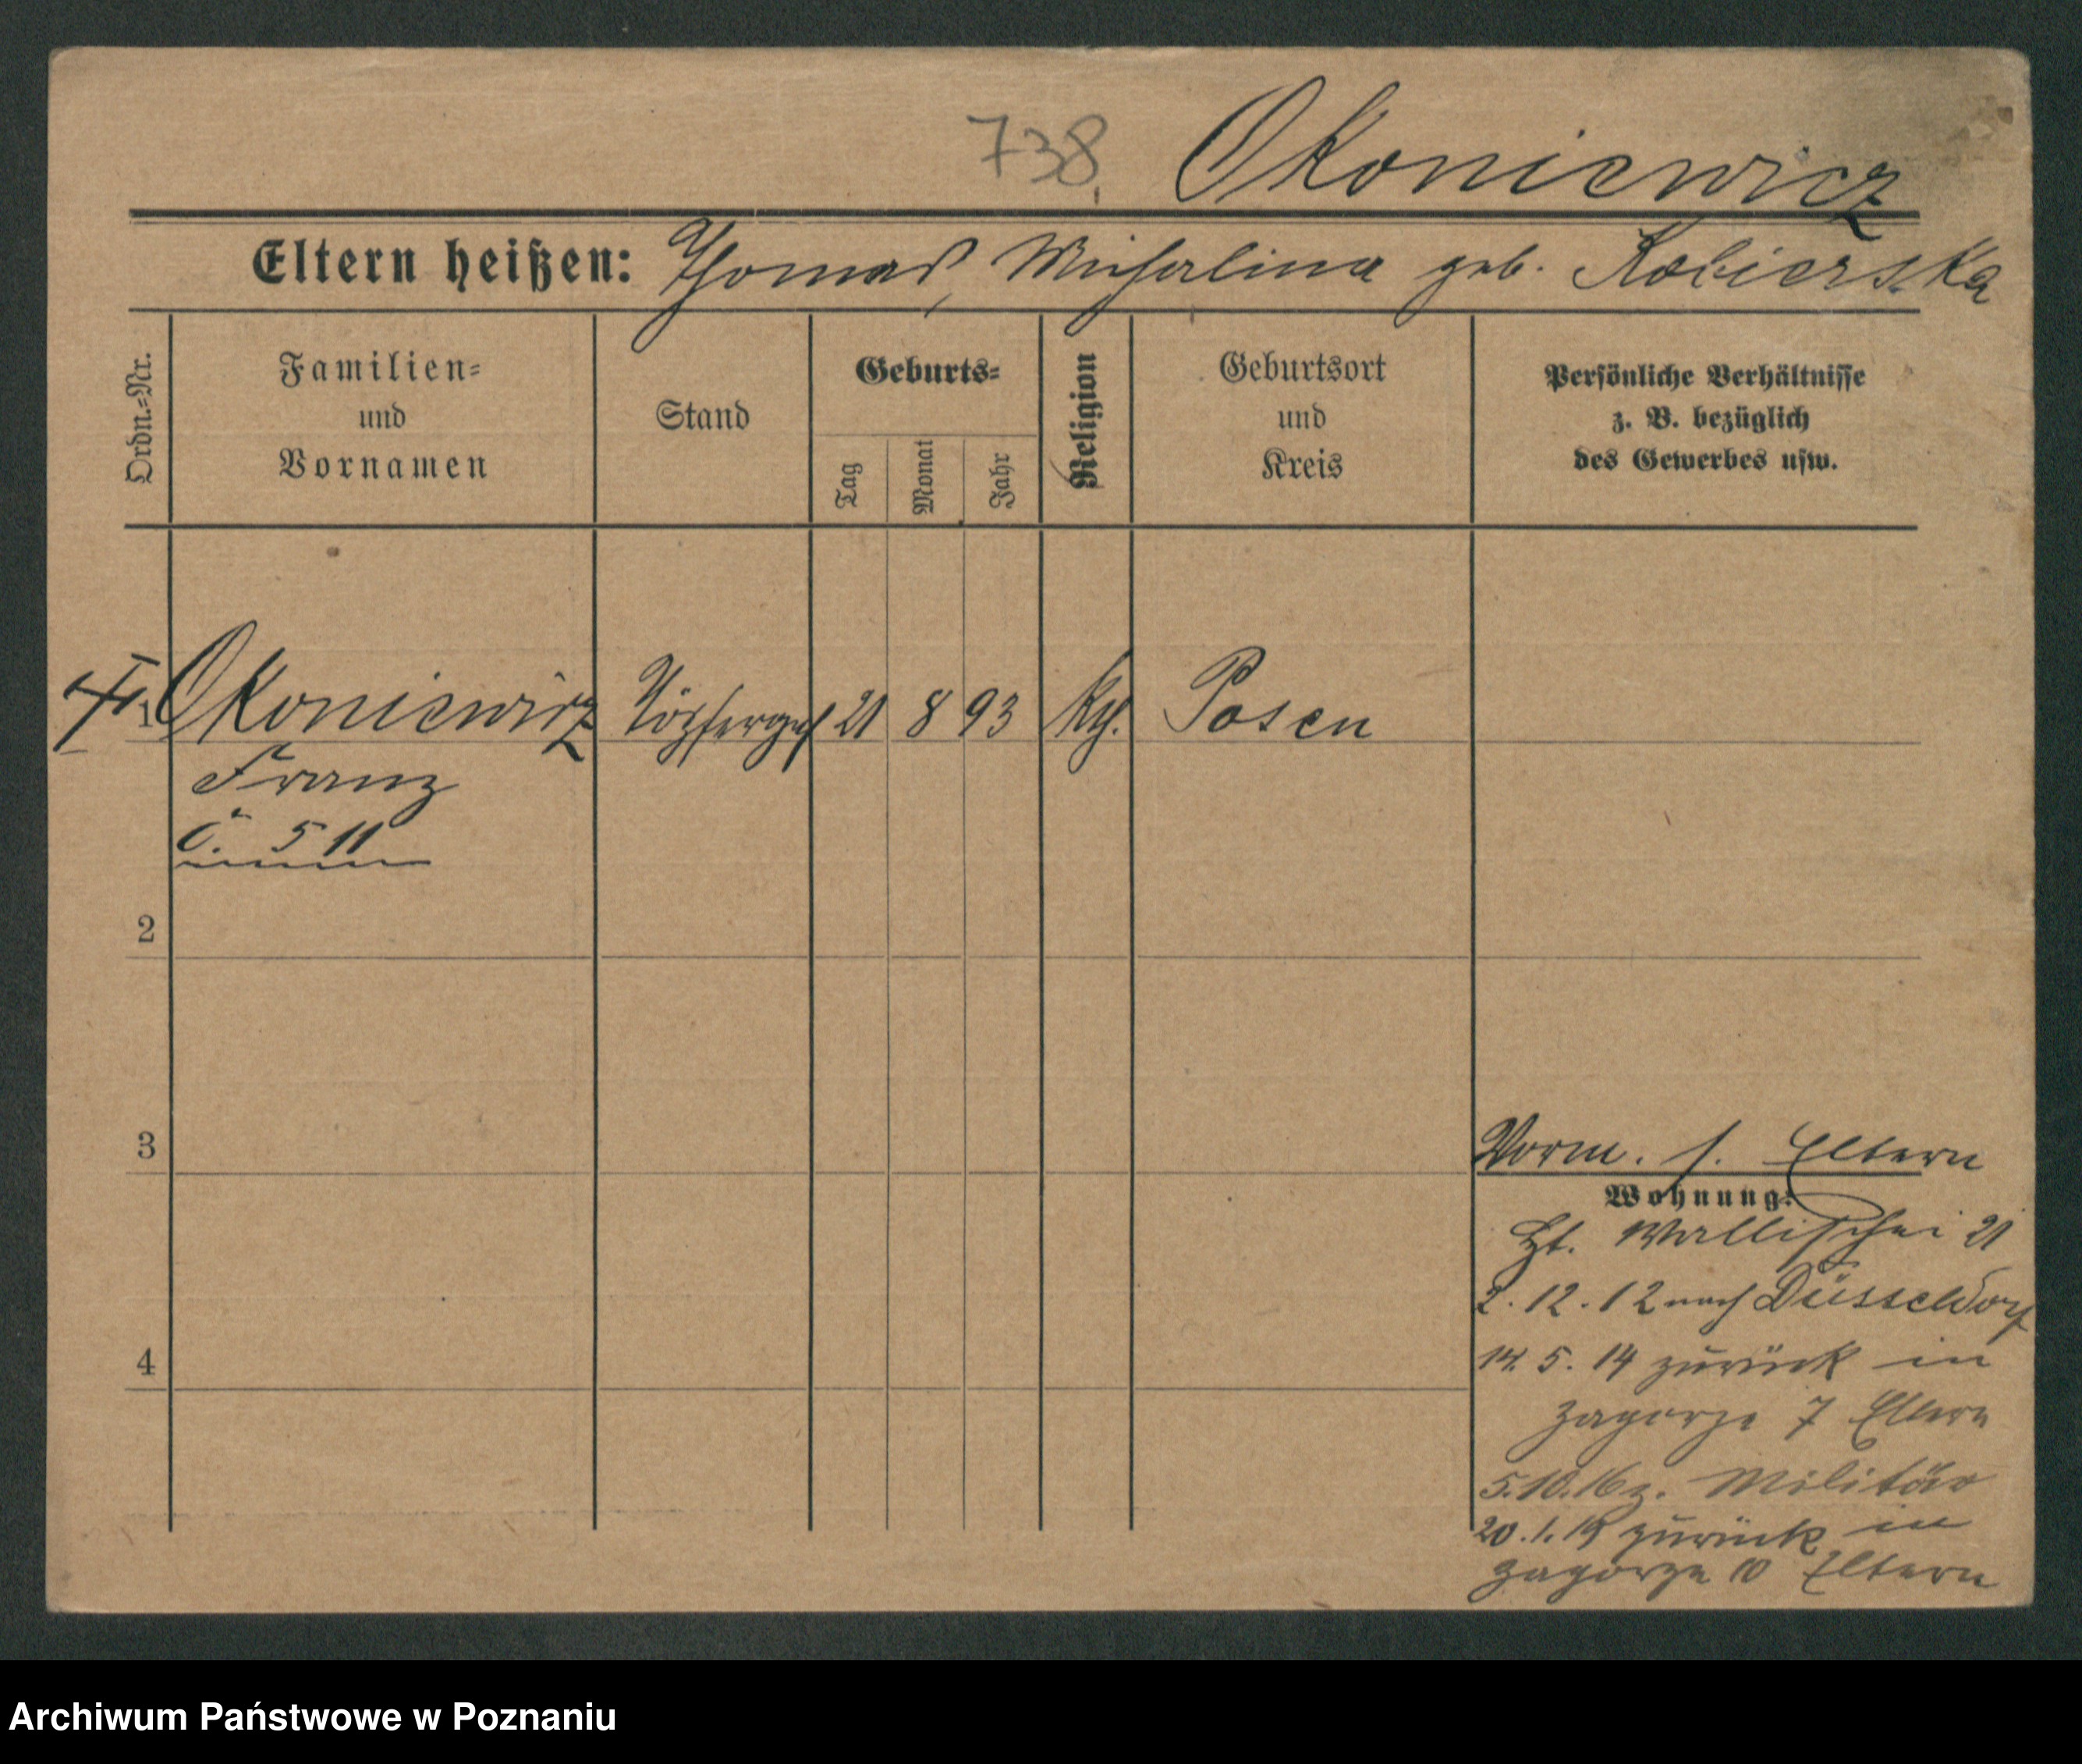 738.
Okoniewicz
Eltern heißen: Thomas, Michalina geb. Kobierska
Ordn.=Nr.
Familien=
und
Vornamen
Stand
Geburts=
Tag
Monat
Jahr
Religion
Geburtsort
und
Kreis
Persönliche Verhältnisse
z. B. bezüglich
des Gewerbes usw.
1 Okoniewicz Töpferges 21 8 93 kth. Posen
Franz
C. 511
2
3
Vorm. s. Eltern
Wohnung:
Zt. Wallischei 21
2. 12. 12 nach Düsseldorf
14. 5. 14 zurück in
4
Zagorze 7 Eltern
5.10.16 z. Militär
20. 1. 19 zurück in
Zagorze 10 Eltern
Archiwum Państwowe w Poznaniu